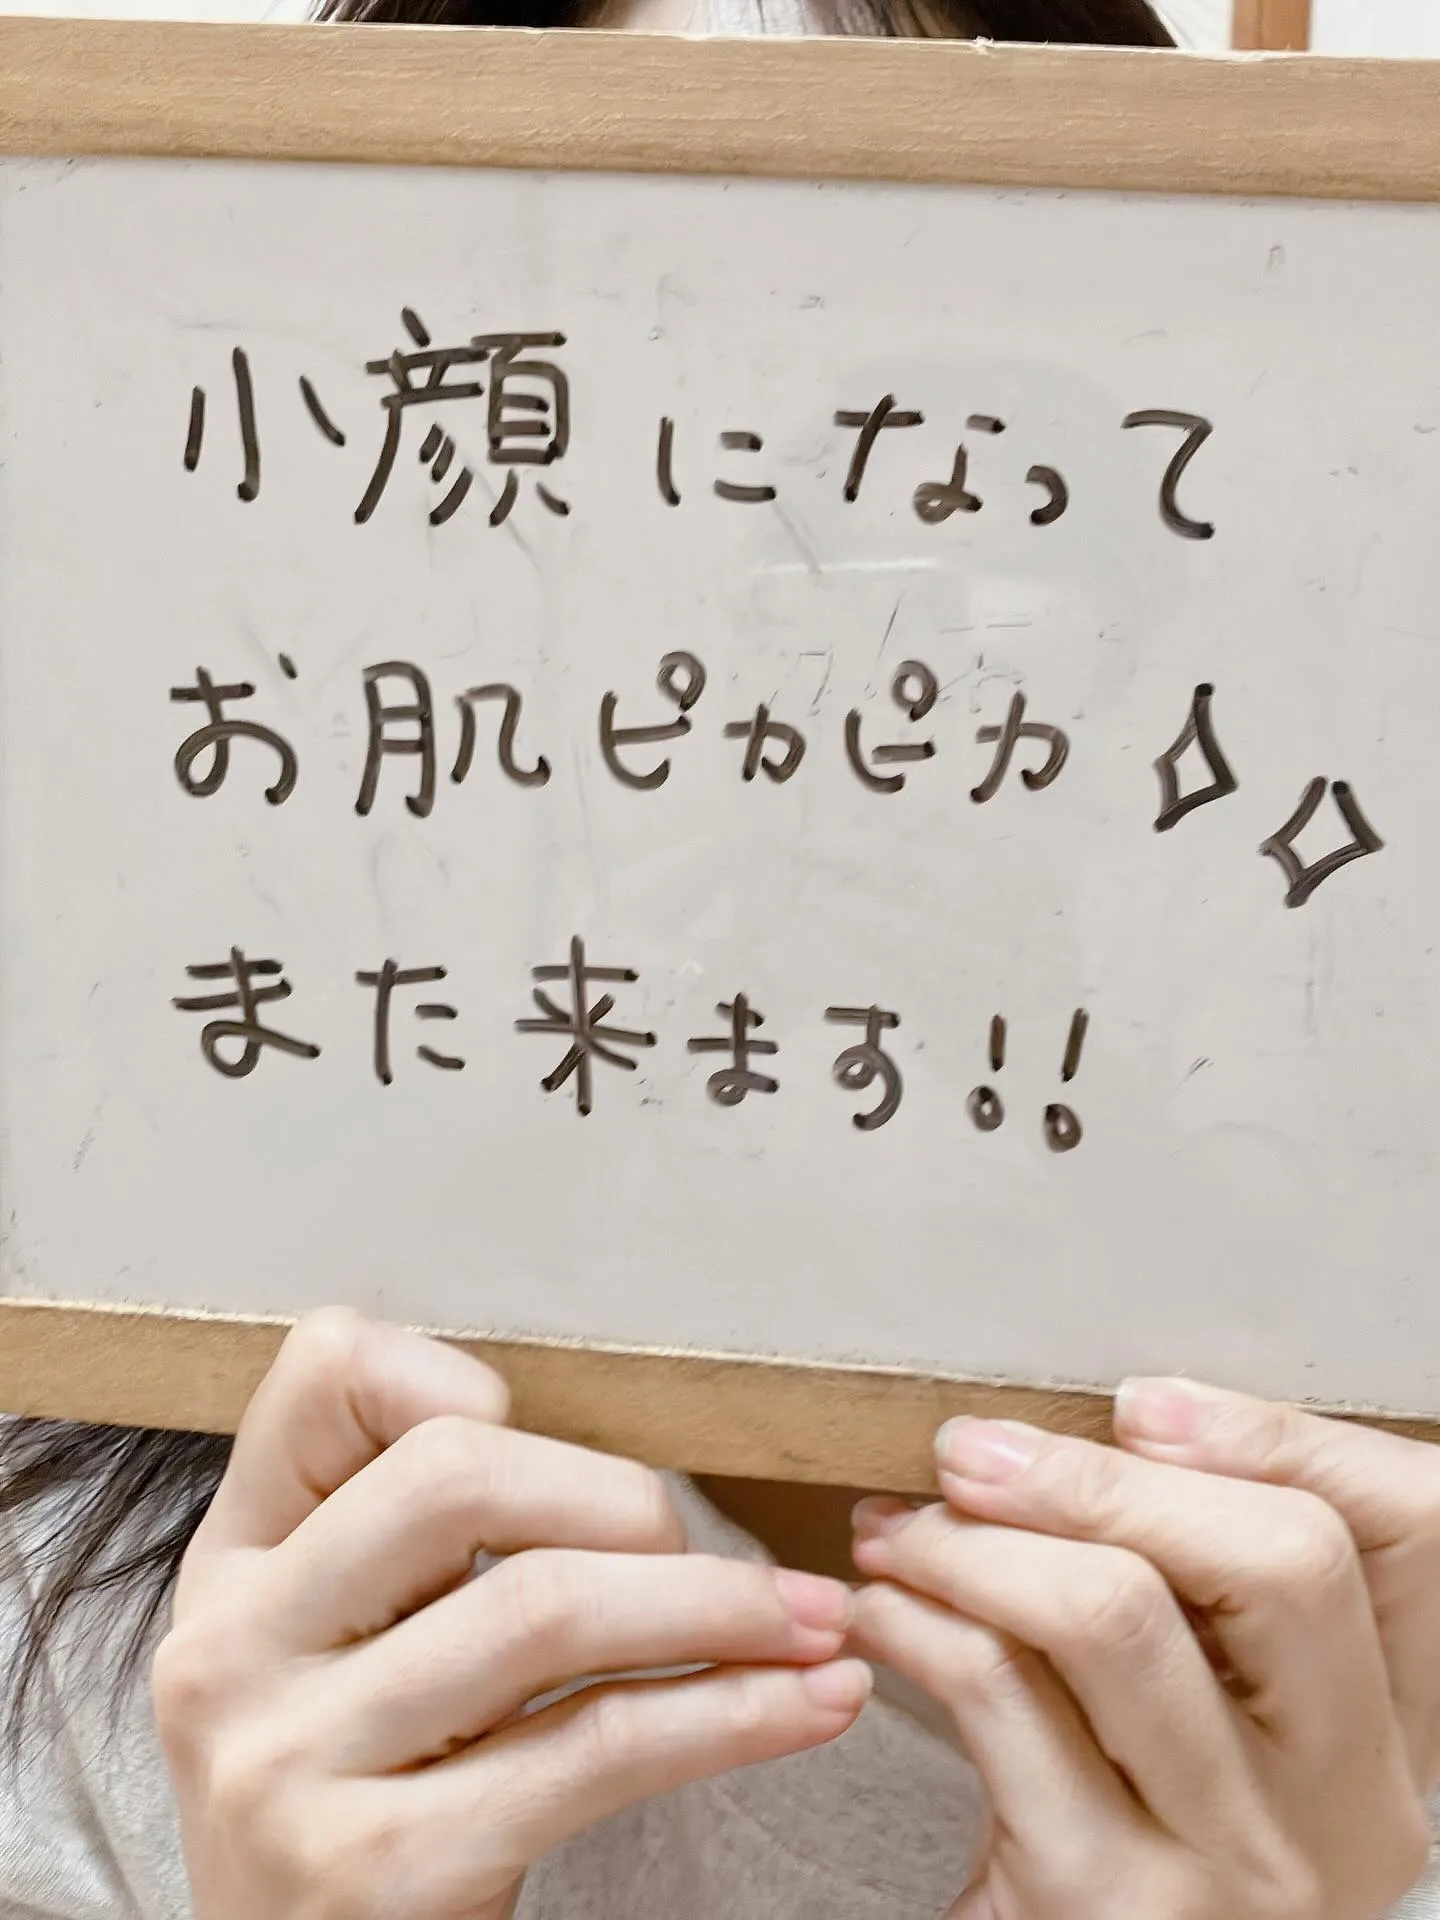 小顔になって
お肌ピカピカ✧✧
また来ます!!